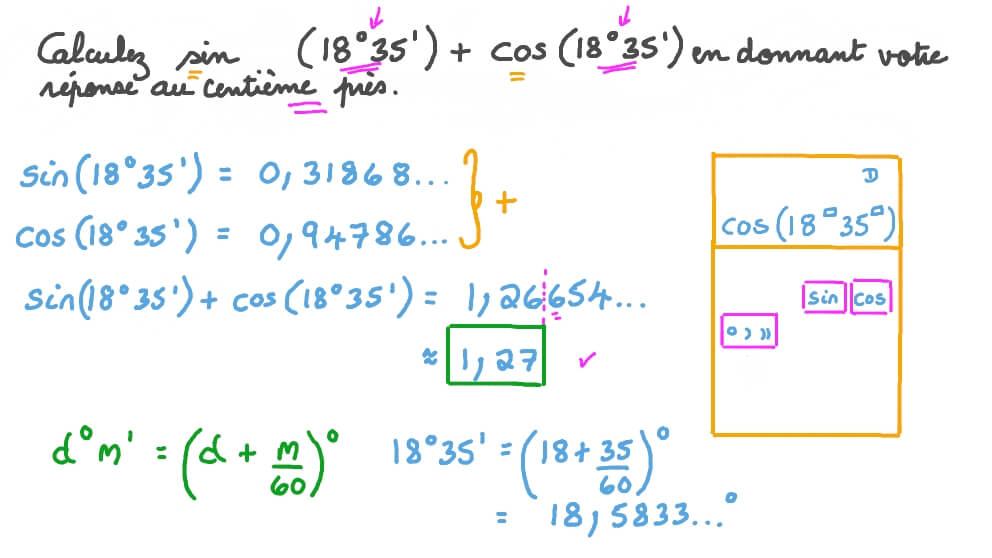 Calculez sin (18°35') + cos (18°35') en donnant votre
réponse au centième près.
sin(18°35') = 0,31868...
cos (18°35') = 0,94786...
+
sin(18°35') + cos (18°35') = 1,26654...
≈ 1,27 ✓
D
cos(18°35°)
sin cos
° , ,,
d°m' = (d + m/60)°
18°35' = (18 + 35/60)°
= 18,5833...°